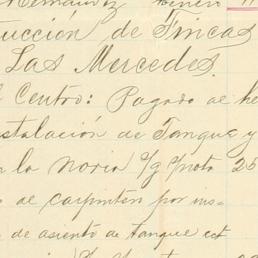 Hernández Enero 11
ucción de Fincas
Las Mercedes.
l Centro: Pagado al he
stalación de Tanque y
la noria s/g nota 25
al carpintero por ins
de asiento de tanque est